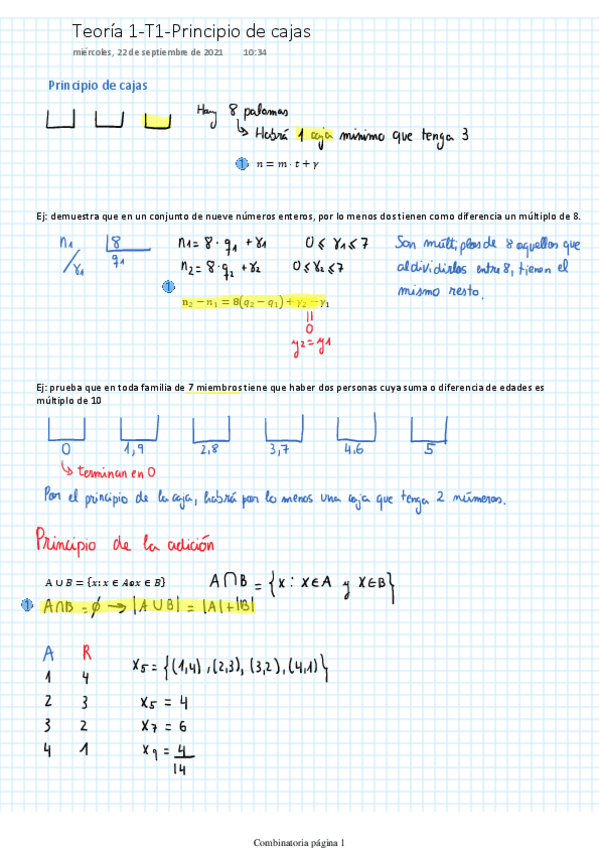 Teoría 1-T1-Principio de cajas
miércoles, 22 de septiembre de 2021 10:34
Principio de cajas
Hay 8 palomas
↳ Habrá 1 caja mínimo que tenga 3
n = m · t + γ
Ej: demuestra que en un conjunto de nueve números enteros, por lo menos dos tienen como diferencia un múltiplo de 8.
n₁ |8
/γ₁ q₁
n₁ = 8 · q₁ + γ₁ 0 ≤ γ₁ ≤ 7
n₂ = 8 · q₂ + γ₂ 0 ≤ γ₂ ≤ 7
n₂ − n₁ = 8(q₂ − q₁) + γ₂ − γ₁
||
0
γ₂ = γ₁
Son múltiplos de 8 aquellos que
al dividirlos entre 8, tienen el
mismo resto.
Ej: prueba que en toda familia de 7 miembros tiene que haber dos personas cuya suma o diferencia de edades es
múltiplo de 10
0 1,9 2,8 3,7 4,6 5
↳ terminan en 0
Por el principio de la caja, habrá por lo menos una caja que tenga 2 números.
Principio de la adición
A ∪ B = {x: x ∈ A o x ∈ B} A∩B = {x : x∈A y x∈B}
A∩B = ∅ → |A∪B| = |A|+|B|
A R
1 4
2 3
3 2
4 1
x₅ = {(1,4), (2,3), (3,2), (4,1)}
x₅ = 4
x₇ = 6
x₉ = 4
14
Combinatoria página 1